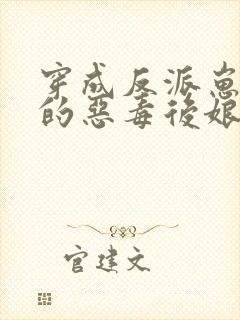 穿成反派崽
的惡毒後娘
官建文